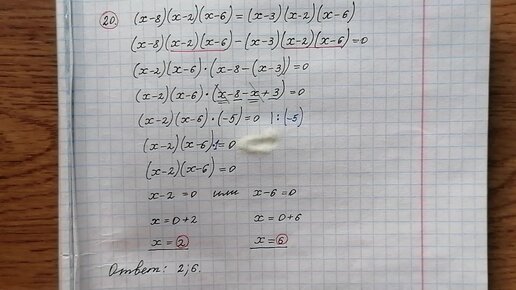 20. (x-8)(x-2)(x-6)=(x-3)(x-2)(x-6)
(x-8)(x-2)(x-6)-(x-3)(x-2)(x-6)=0
(x-2)(x-6)·(x-8-(x-3))=0
(x-2)(x-6)·(x-8-x+3)=0
(x-2)(x-6)·(-5)=0 |:(-5)
(x-2)(x-6)·1=0
(x-2)(x-6)=0
x-2=0 или x-6=0
x=0+2 x=0+6
x=2 x=6
Ответ: 2;6.